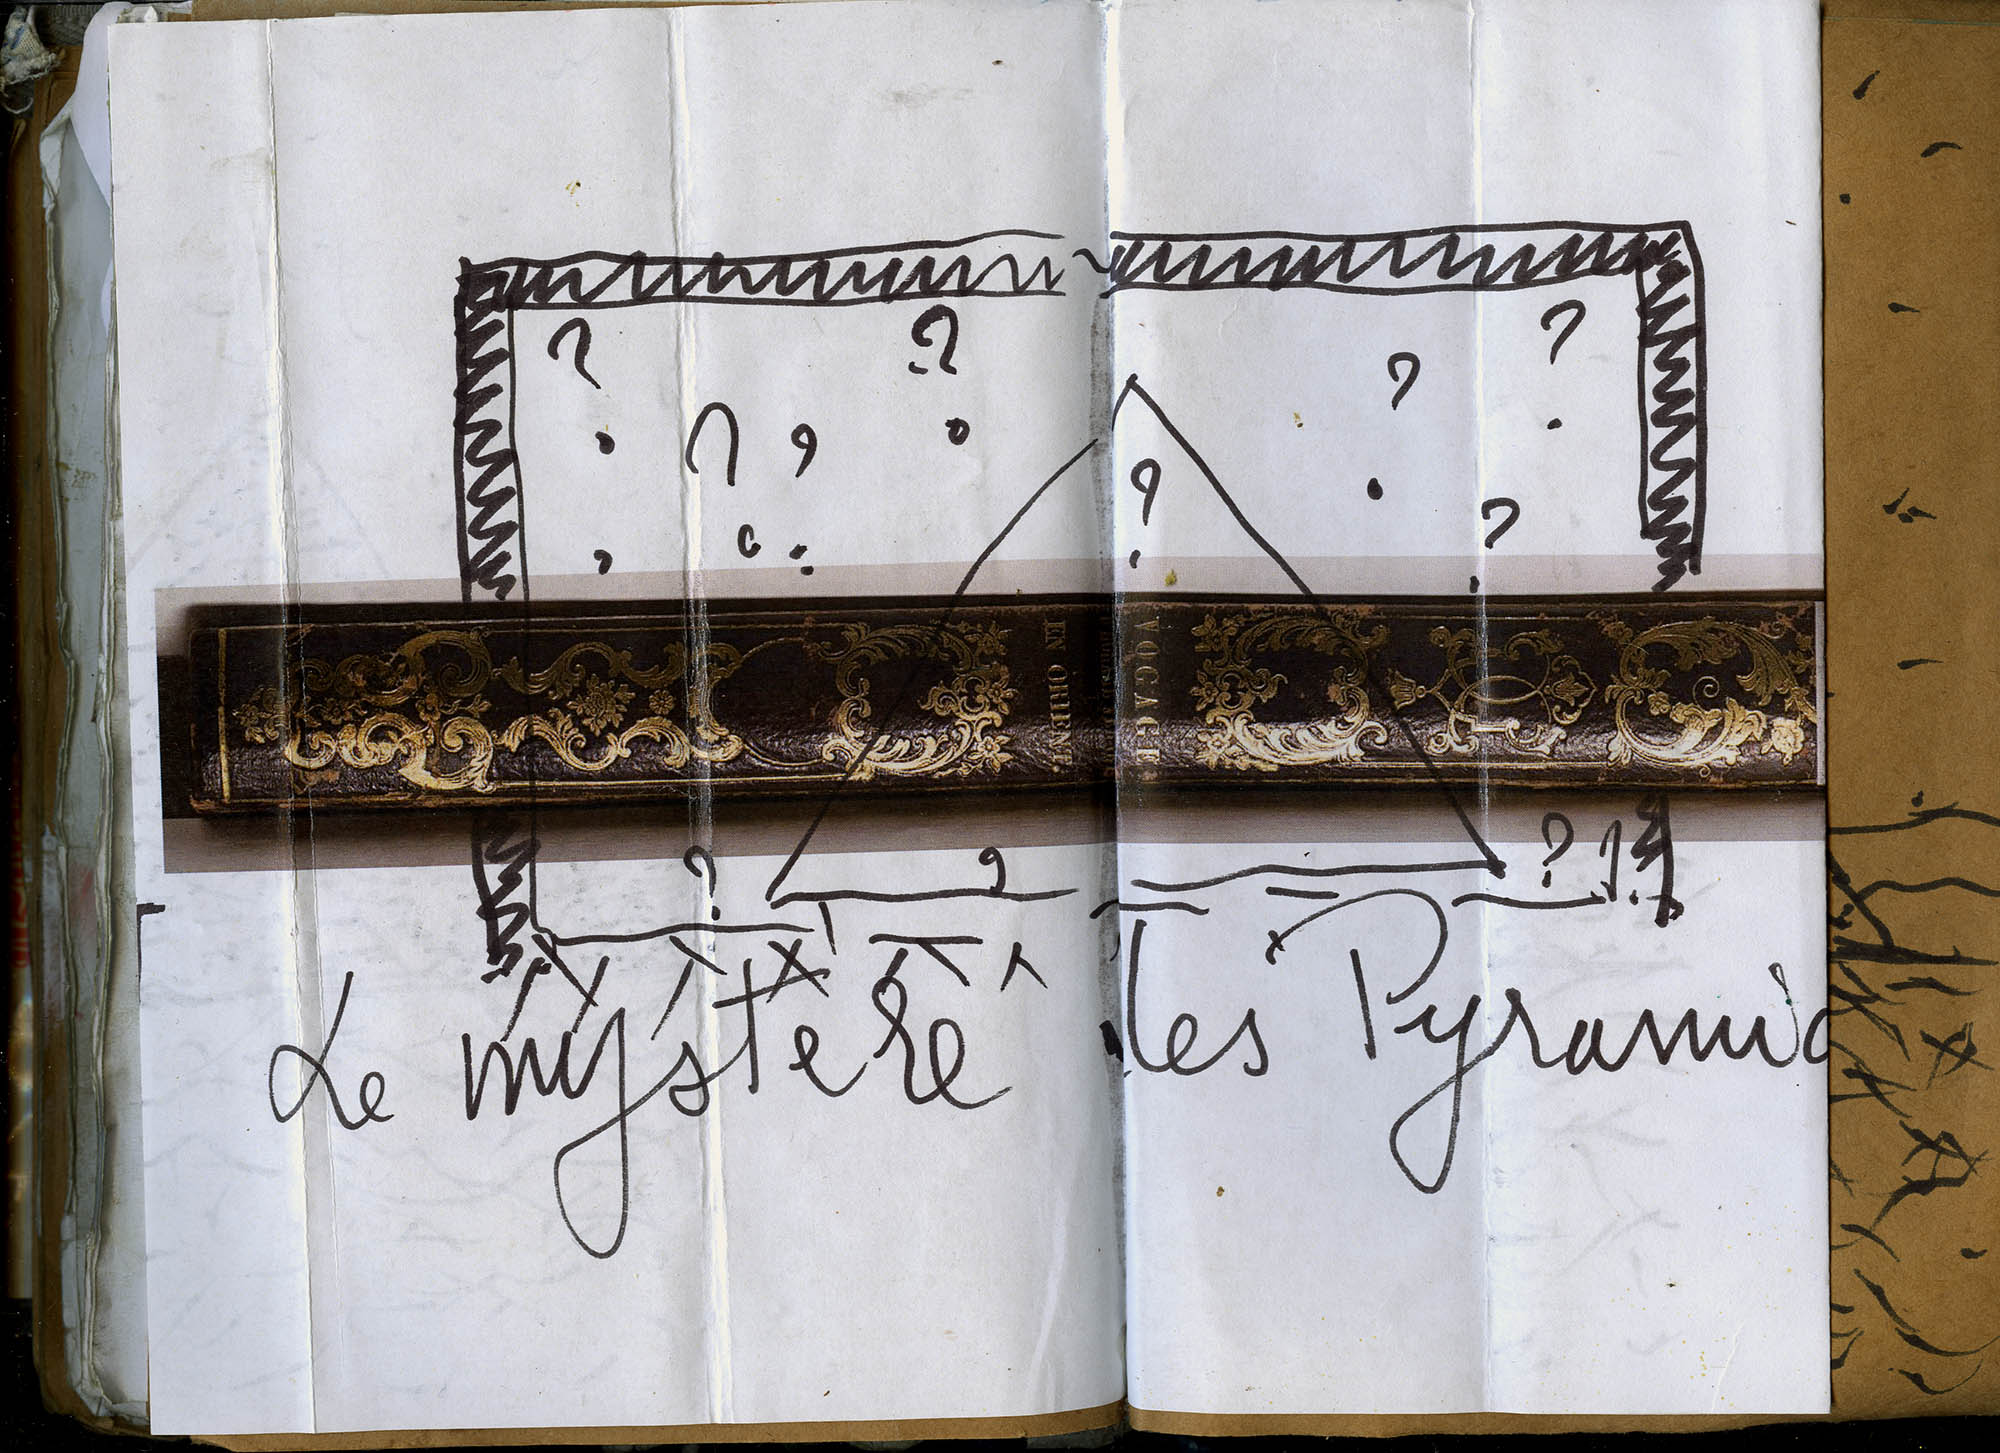 VOGAGE
EN ORIENT.
Le mystère des Pyramid